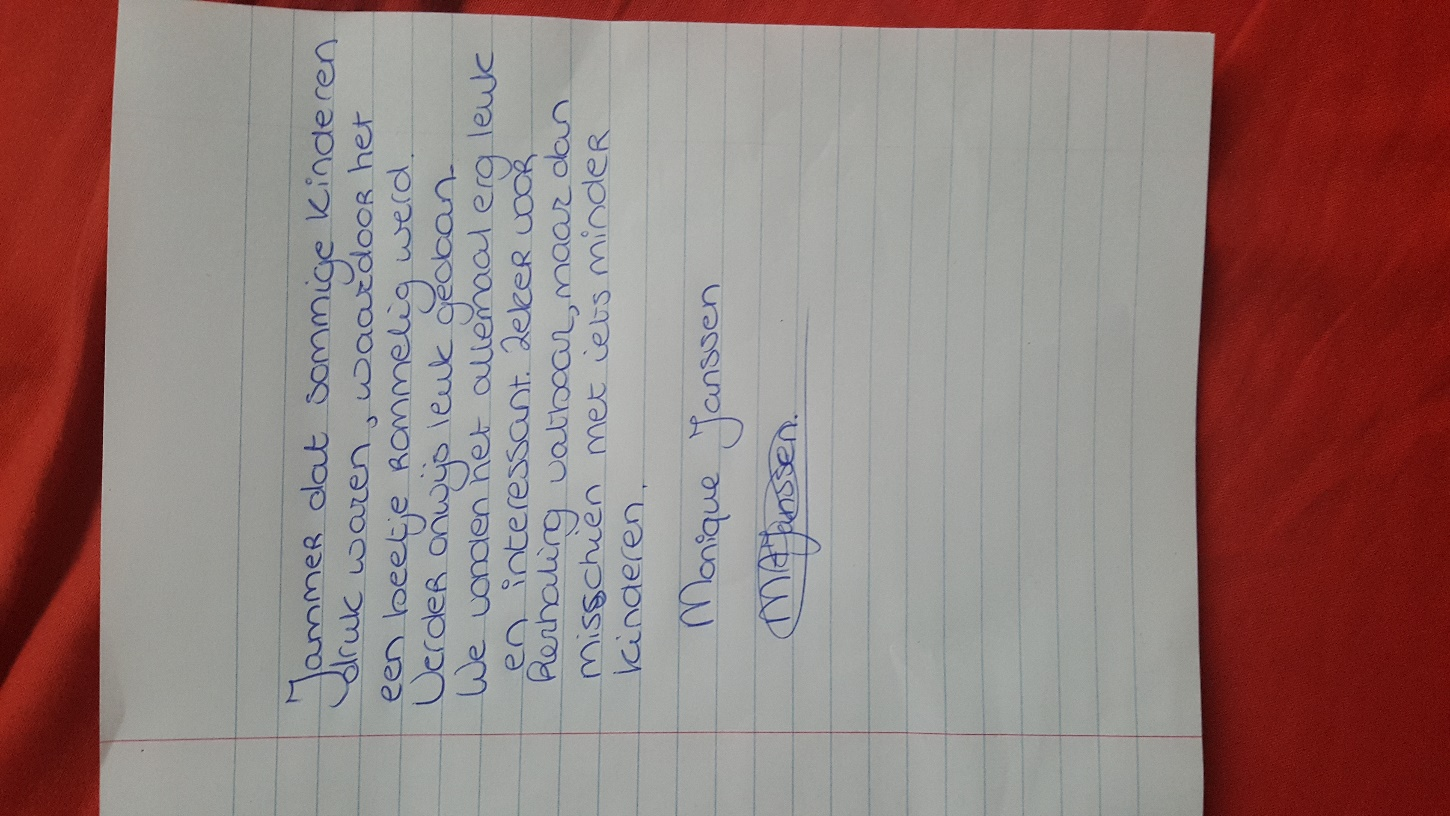 Jammer dat sommige kinderen
druk waren, waardoor het
een beetje rommelig werd.
Verder onwijs leuk gedaan.
We vonden het allemaal erg leuk
en interessant. Zeker voor
herhaling vatbaar, maar dan
misschien met iets minder
kinderen.
Monique Janssen
MAJanssen.